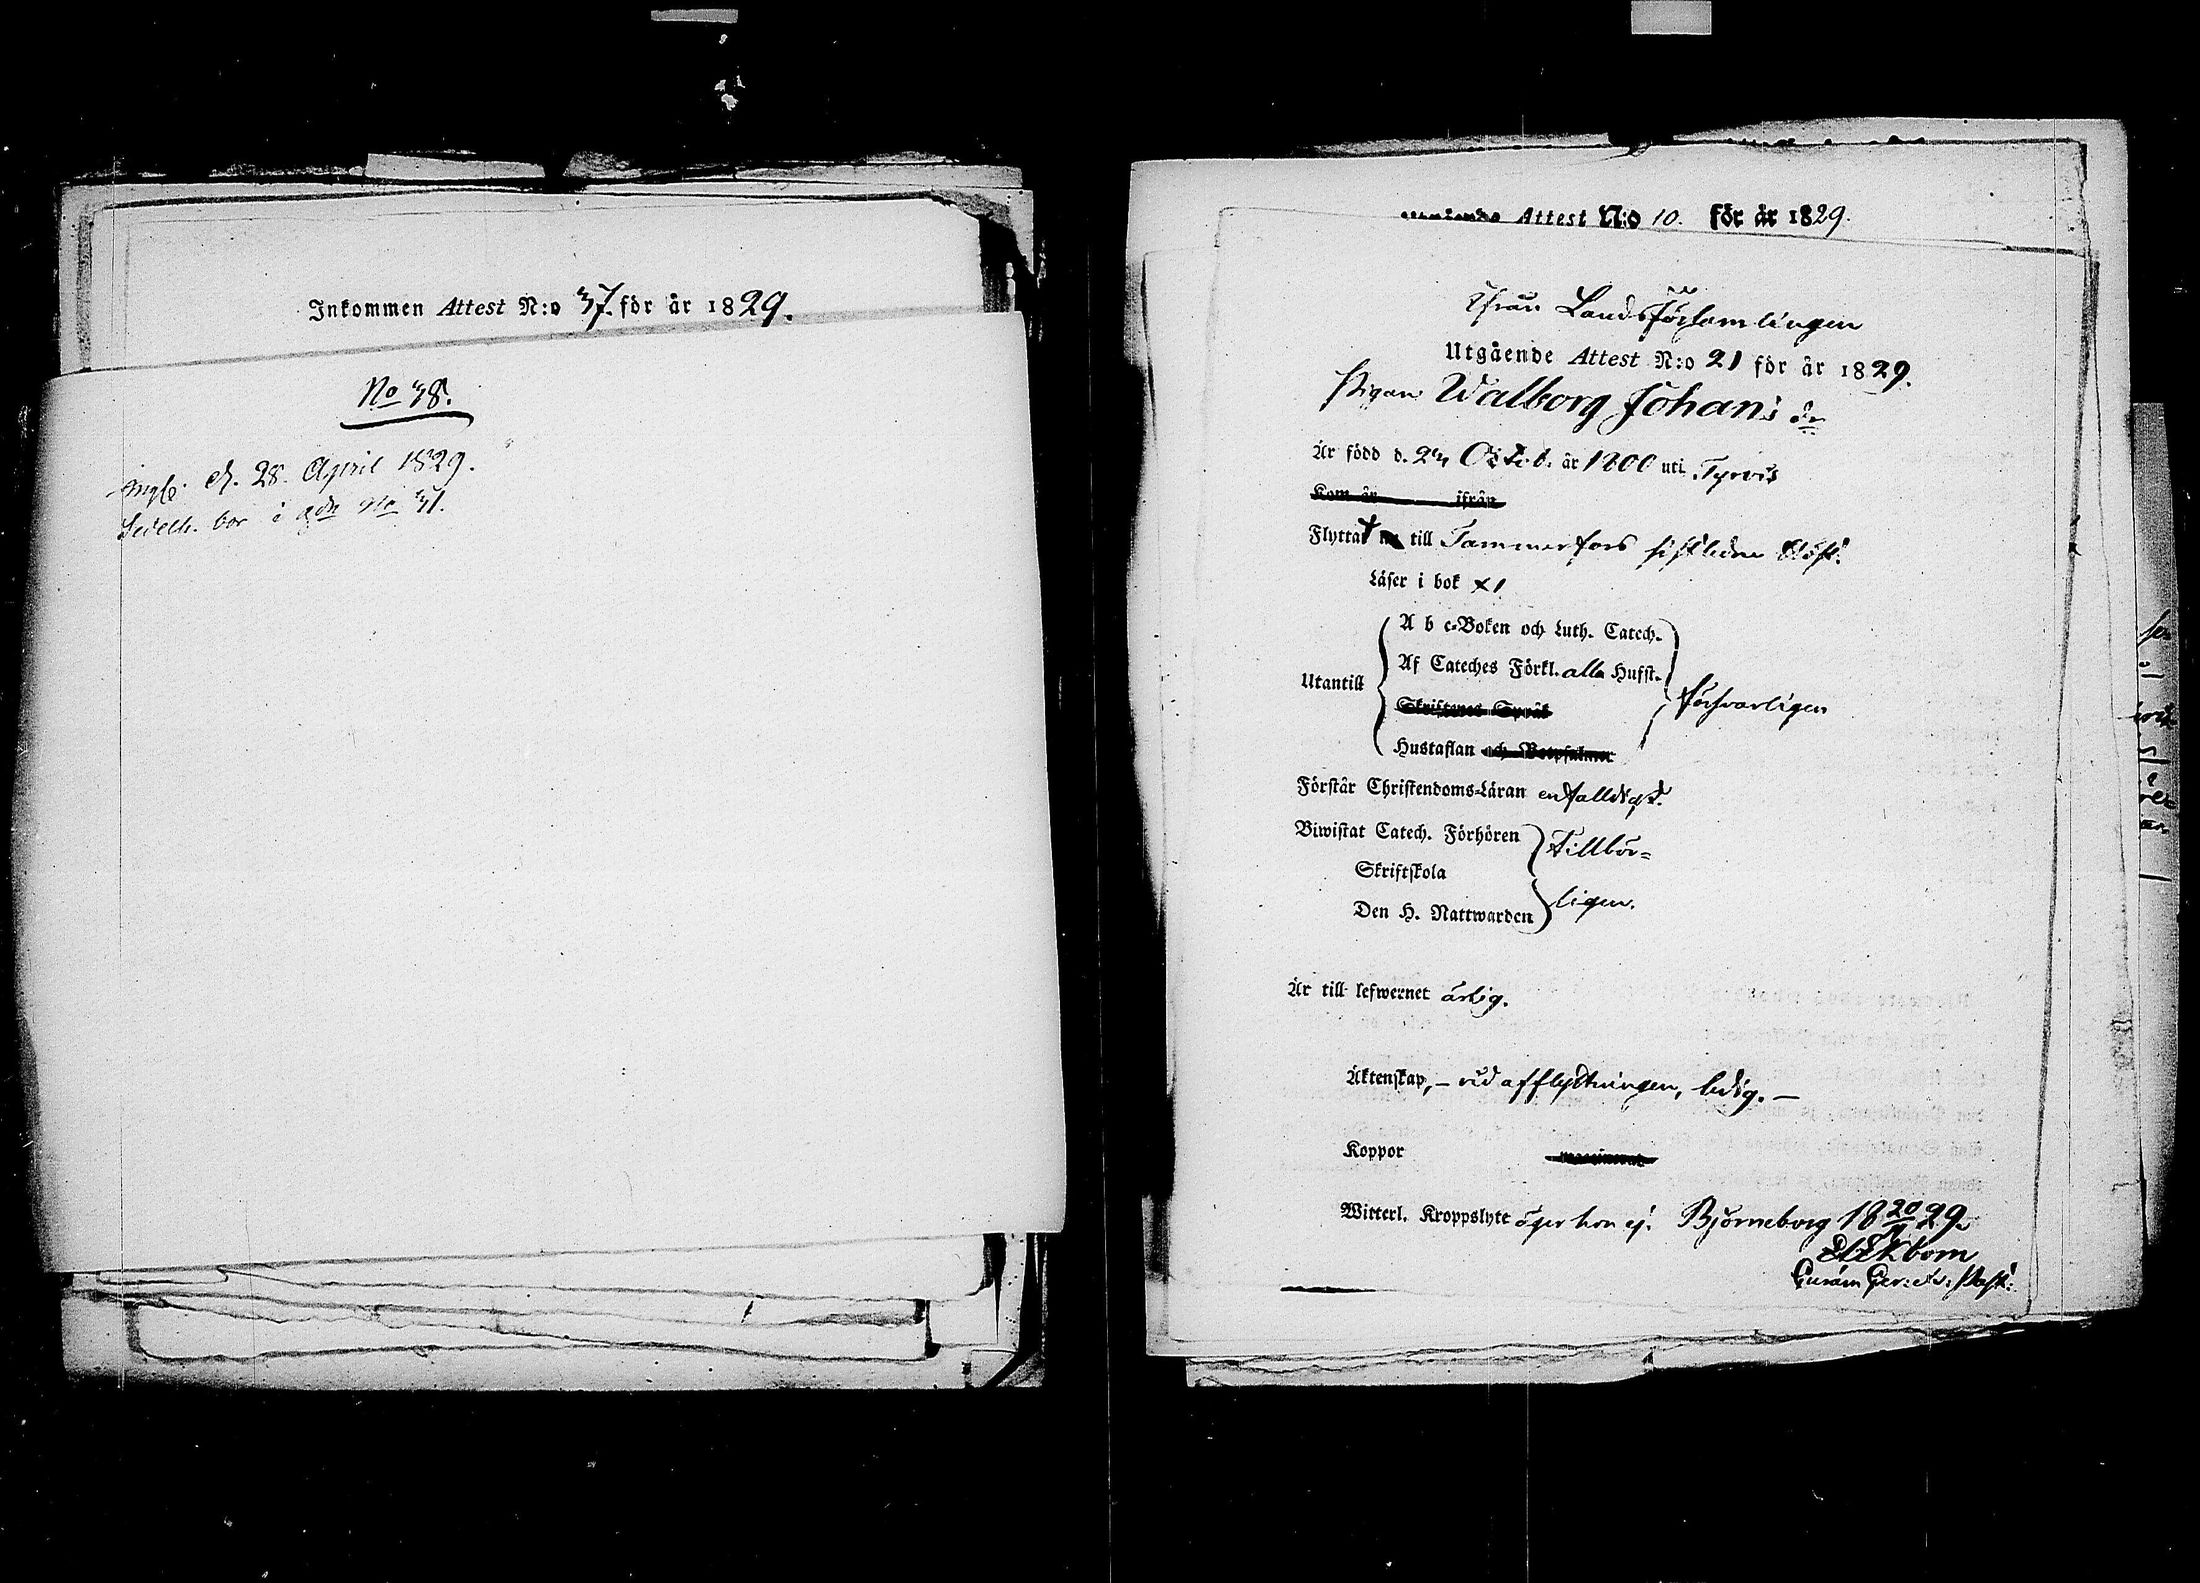 Inkommen Attest N:o 37. för år 1829.
No 38.
d. 28. April 1829.
bor i
Attest N:o 10. för år 1829.
Ifrån Landsförsamlingen
Utgående Attest N:o 21 för år 1829.
Pigan Walborg Johans dr
Är född d. 24 Octob. år 1800 uti Tyrvis
Kom år ifrån
Flyttat till Tammerfors sistledne Höst.
Läser i bok x1
A b c-Boken och Luth. Catech.
Af Cateches Förkl. alla Hufst.
Utantill
försvarligen
Skriftenes Språk
Hustaflan och Botpsalmer
Förstår Christendoms-Läran enfalldigt.
Biwistat Catech. Förhören
Tillbör=
Skriftskola
Den H. Nattwarden
ligen.
Är till lefwernet ärlig.
Äktenskap, – vid afflyttningen, ledig. –
Koppor vaccinerat
Witterl. Kroppslyte äger hon ej. Björneborg 18 20/4 29.
Ekbom